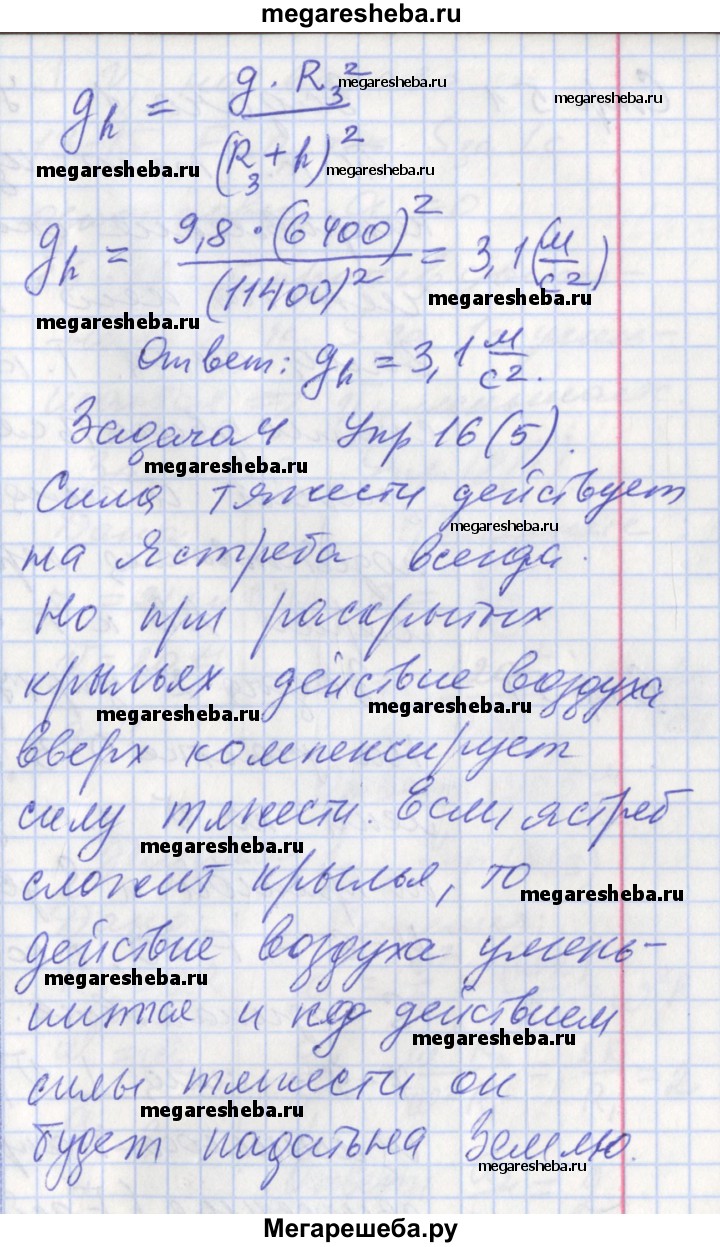 megaresheba.ru
g_h = g · R_З² / (R_З + h)²
megaresheba.ru
megaresheba.ru
megaresheba.ru
megaresheba.ru
g_h = 9,8 · (6400)² / (11400)² = 3,1 (м/с²)
megaresheba.ru
megaresheba.ru
Ответ: g_h = 3,1 м/с².
Задача 4 Упр 16 (5).
megaresheba.ru
Сила тяжести действует
megaresheba.ru
на ястреба всегда.
Но при раскрытых
крыльях действие воздуха
megaresheba.ru
megaresheba.ru
вверх компенсирует
силу тяжести. Если ястреб
megaresheba.ru
сложит крылья, то
megaresheba.ru
действие воздуха умень-
megaresheba.ru
шится и под действием
megaresheba.ru
силы тяжести он
megaresheba.ru
будет падать на Землю.
megaresheba.ru
Мегарешеба.ру